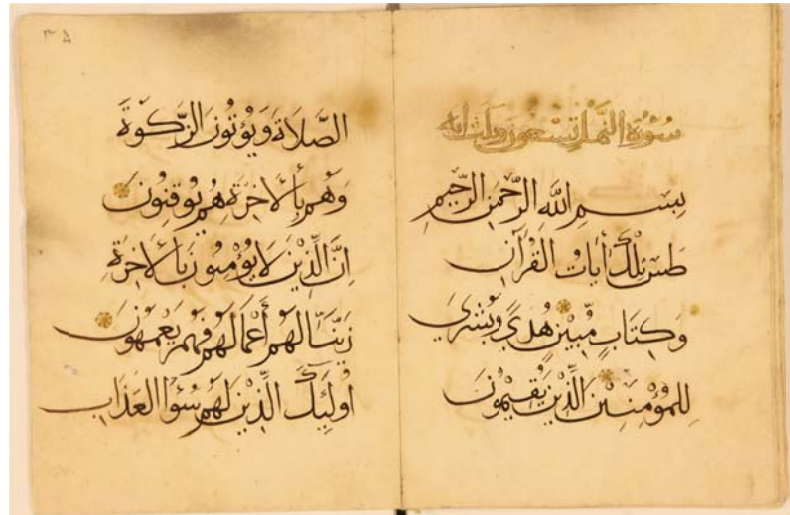 سورة النمل تسعون وثلث آية
بِسْمِ اللَّهِ الرَّحْمَنِ الرَّحِيمِ
طس تِلْكَ أيَاتُ القُرْآنِ
وَكِتَابٍ مُّبِيْنٍ هُدًى وَبُشْرَى
لِلْمُؤْمِنِيْنَ الَّذِيْنَ يُقِيْمُونَ
الصَّلَاةَ وَيُؤْتُونَ الزَّكَوةَ
وَهُم بِالْآخِرَةِ هُم يُوقِنُونَ
اِنَّ الَّذِيْنَ لَا يُؤْمِنُونَ بِالْآخِرَةِ
زَيَّنَّا لَهُم أَعْمَالَهُم فَهُم يَعْمَهُونَ
أُولَئِكَ الَّذِيْنَ لَهُم سُوْءُ العَذَابِ